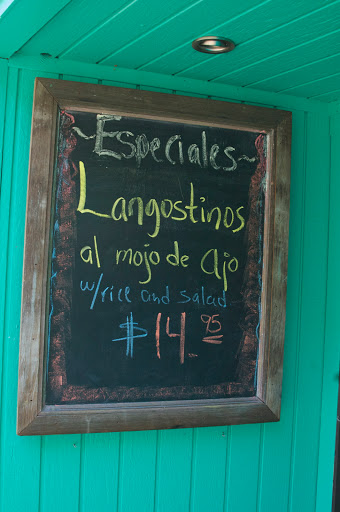 ~Especiales~
Langostinos
al mojo de ajo
w/rice and salad
$14.95